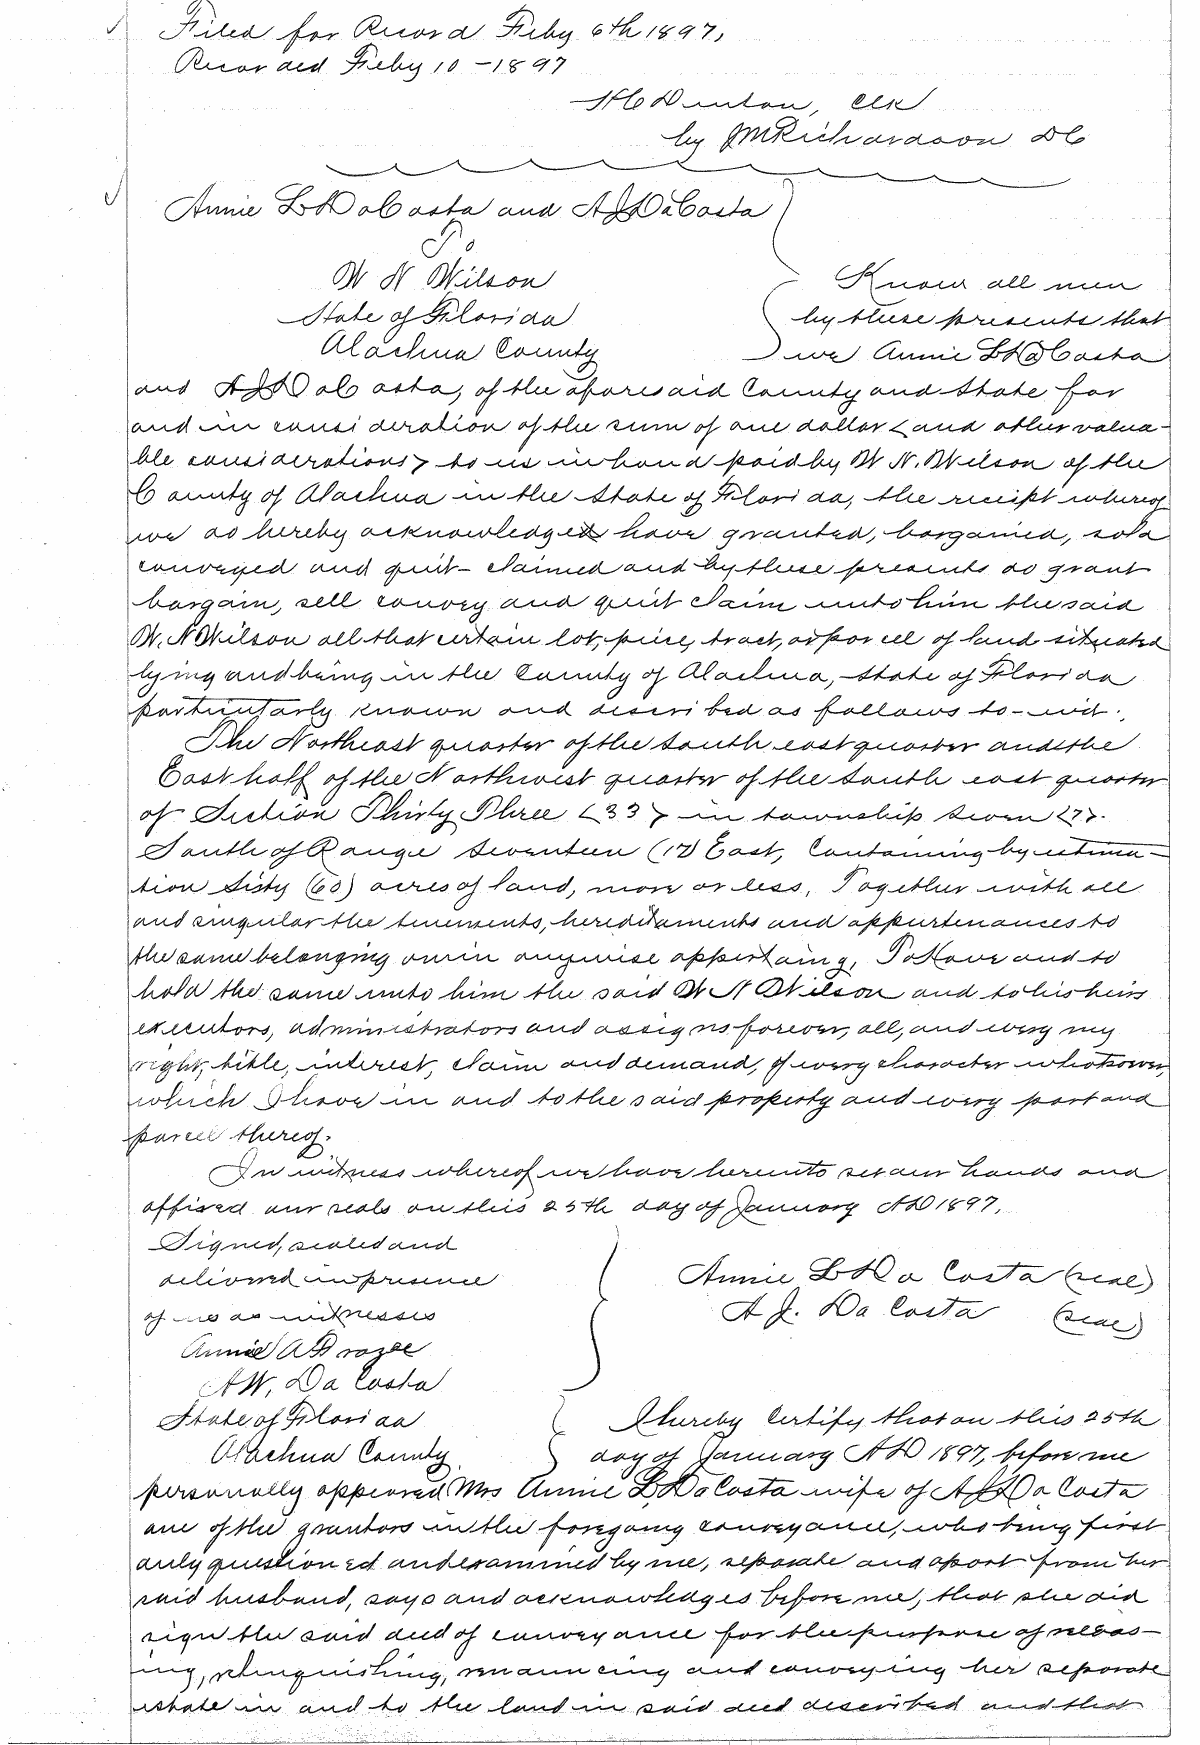 Filed for Record Feby 6th 1897,
Recorded Feby 10 - 1897
H C Denton, Clk
by JM Richardson DC
Annie L DaCosta and A J DaCosta
To
W N Wilson
Know all men
State of Florida
by these presents that
Alachua County
we Annie L DaCosta
and A J DaCosta, of the aforesaid County and State for
and in consideration of the sum of one dollar <and other valua-
ble considerations> to us in hand paid by W. N. Wilson of the
County of Alachua in the State of Florida, the receipt whereof
we do hereby acknowledged have granted, bargained, sold
conveyed and quit-claimed and by these presents do grant
bargain, sell convey and quit claim unto him the said
W. N Wilson all that certain lot, piece, tract, or parcell of land situated
lying and being in the County of Alachua, State of Florida
particularly known and described as follows to-wit:,
The Northeast quarter of the South east quarter and the
East half of the Northwest quarter of the South east quarter
of Section Thirty Three <33> in township seven <7>.
South of Range Seventeen (17) East, Containing by estima-
tion Sisty (60) acres of land, more or less, Together with all
and singular the tenements, hereditaments and appurtenances to
the same belonging or in anywise appertaing, To Have and to
hold the same unto him the said W N Wilson and to his heirs
executors, administrators and assigns forever, all, and every my
right, title, interest, claim and demand, of every character whatsoever,
which I have in and to the said property and every part and
parcel thereof.
In witness whereof we have hereunto set our hands and
affixed our seals on this 25th day of January AD 1897.
Signed, sealed and
delivered in presence
Annie L Da Costa (seal)
of us as witnesses
A J. Da Costa (seal)
Annie A Brozee
A W. Da Costa
State of Florida
I hereby Certify that on this 25th
Alachua County
day of January AD 1897, before me
personally appeared Mrs Annie L DaCosta wife of A J Da Costa
one of the grantors in the foregoing conveyance, who being first
duly questioned and examined by me, separate and apart from her
said husband, says and acknowledges before me, that she did
sign the said deed of conveyance for the purpose of releas-
ing, relinquishing, renouncing and conveying her separate
estate in and to the land in said deed described and that